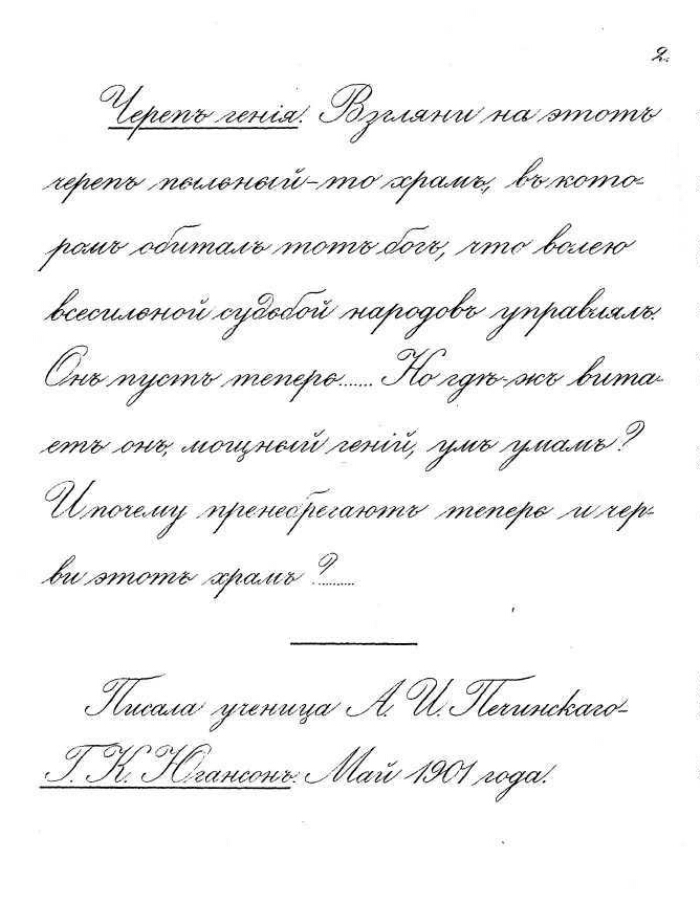 2.
Черепъ генія. Взгляни на этотъ
черепъ пыльный-то храмъ, въ кото-
ромъ обиталъ тотъ богъ, что волею
всесильной судьбой народовъ управлялъ.
Онъ пустъ теперь...... Но гдѣ-жъ вита-
етъ онъ, мощный геній, умъ умамъ?
И почему пренебрегаютъ теперь и чер-
ви этотъ храмъ?........
Писала ученица А. И. Печинскаго-
Г. К. Югансонъ. Май 1901 года.